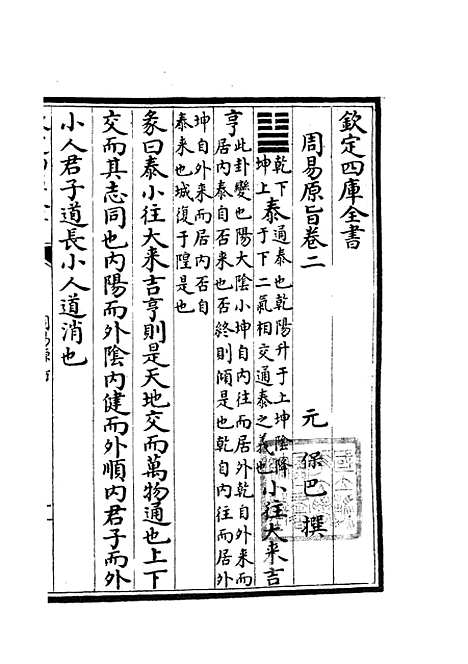 欽定四庫全書
周易原旨卷二 元 保巴 撰
䷊ 乾下坤上 泰 通泰也乾陽升于上坤陰降于下二氣相交通泰之義也 小往大来吉
亨 此卦變也陽大陰小坤自内往而居外乾自外来而居内泰自否来也否終則傾是也乾自内往而居外
坤自外来而居内否自泰来也城復于隍是也
彖曰泰小往大来吉亨則是天地交而萬物通也上下
交而其志同也内陽而外陰内健而外順内君子而外
小人君子道長小人道消也